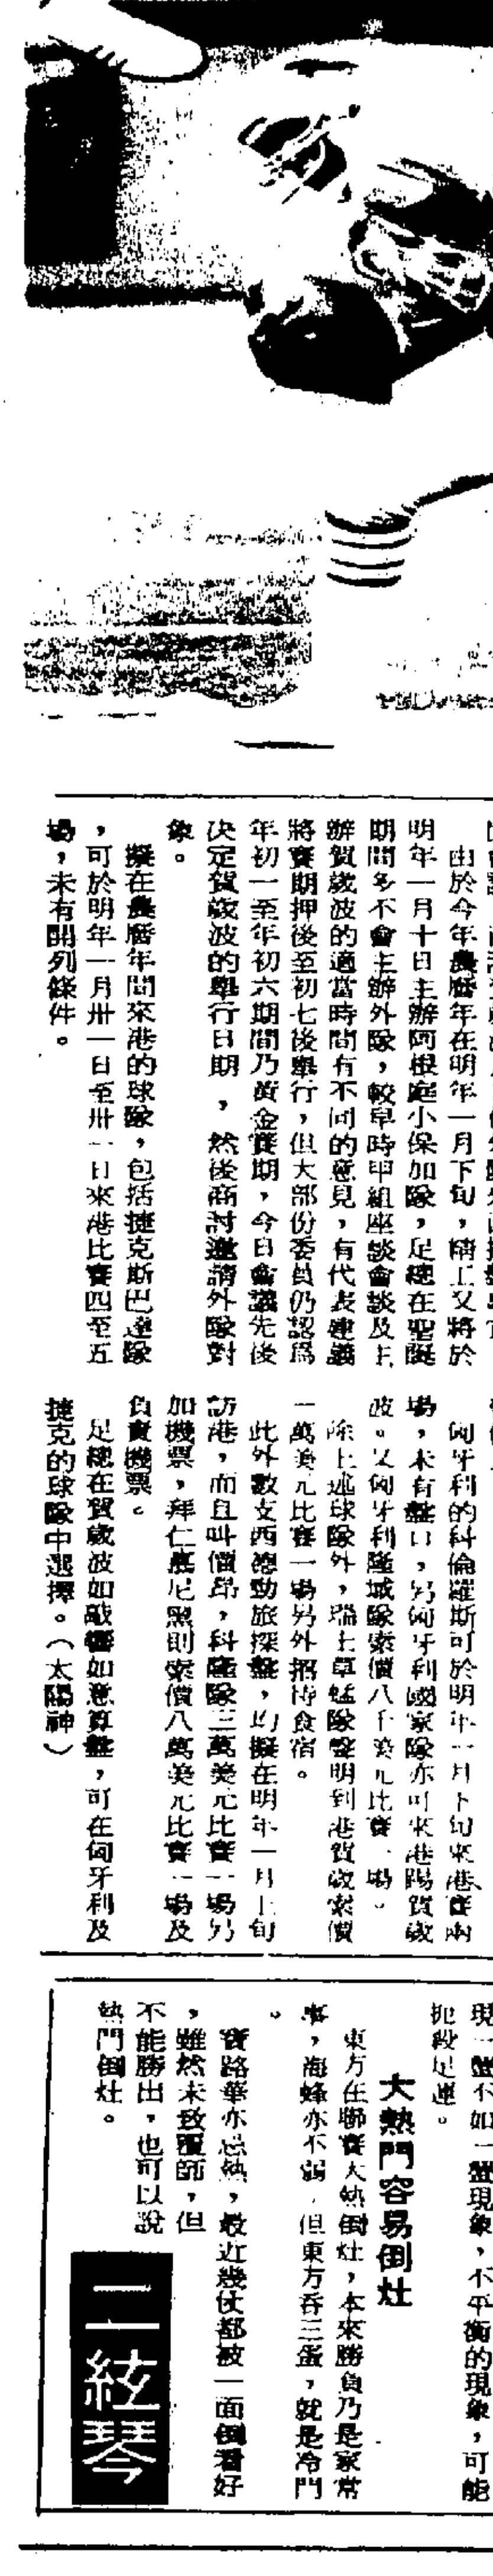 由於今年農曆年在明年一月下旬，精工又將於
明年一月十日主辦阿根庭小保加隊，足總在聖誕
期間多不會主辦外隊，較早時甲組座談會談及主
辦賀歲波的適當時間有不同的意見，有代表建議
將賽期押後至初七後舉行，但大部份委員仍認爲
年初一至年初六期間乃黃金賽期，今日會議先後
決定賀歲波的舉行日期，然後商討邀請外隊對
象。
擬在農曆年間來港的球隊，包括捷克斯巴達隊
，可於明年一月卅一日至卅一日來港比賽四至五
場，未有開列條件。
匈牙利的科倫羅斯可於明年一月下旬來港賽兩
場，未有盤口，另匈牙利國家隊亦可來港踢賀歲
波。又匈牙利隆城隊索價八千美元比賽一場。
除上述球隊外，瑞士草蜢隊聲明到港賀歲索價
一萬美元比賽一場另外招待食宿。
此外數支西德勁旅探盤，均擬在明年一月上旬
訪港，而且叫價昂，科隆隊三萬美元比賽一場另
加機票，拜仁慕尼黑則索價八萬美元比賽一場及
負責機票。
足總在賀歲波如敲響如意算盤，可在匈牙利及
捷克的球隊中選擇。（太陽神）
現一蟹不如一蟹現象，不平衡的現象，可能
扼殺足運。
大熱門容易倒灶
東方在聯賽大熱倒灶，本來勝負乃是家常
事，海蜂亦不弱，但東方吞三蛋，就是冷門
。
寶路華亦忌熱，最近幾仗都被一面倒看好
，雖然未致覆師，但
不能勝出，也可以說
熱門倒灶。
二絃琴